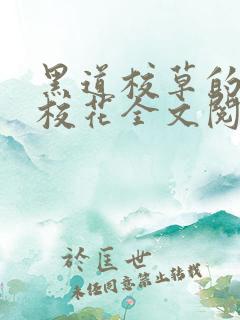 黑道校草的
校花全文阅
於匡世
未经同意禁止转载